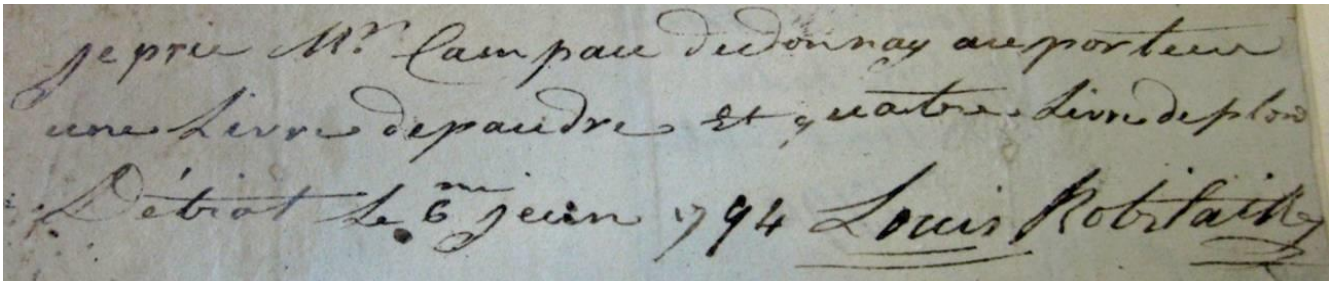 je prie Mr. Campau dedonnay au porteur
une Livre depaudre et quatre Livre deplon
Détroit Le 6me juin 1794 Louis Robitaille